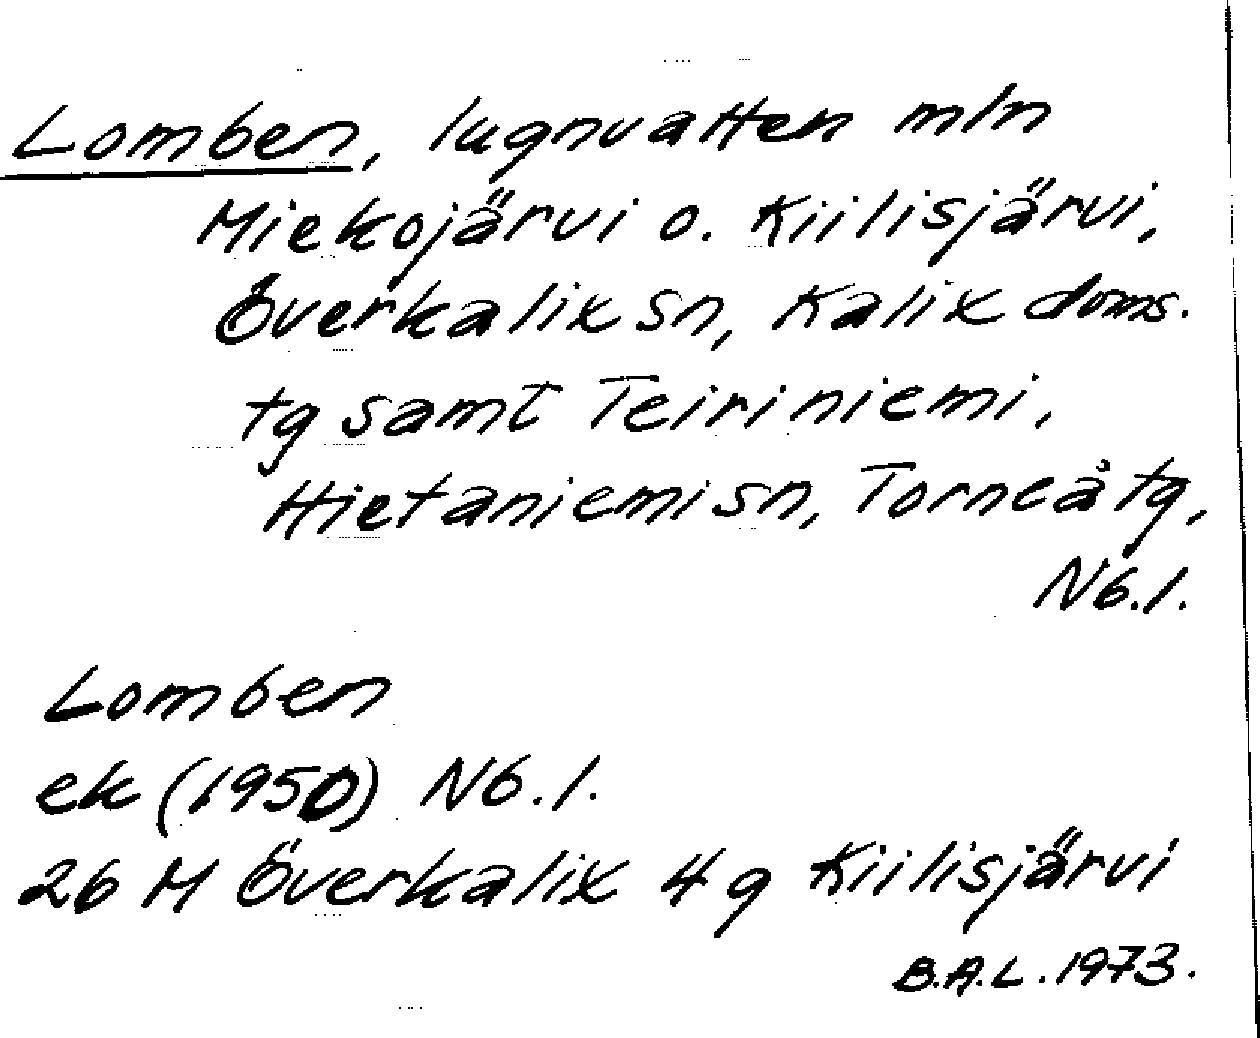 Lomben, lugnvatten mln
Miekojärvi o. Kiilisjärvi,
Överkalix sn, Kalix doms.
tg samt Teiriniemi,
Hietaniemi sn, Torneå tg,
Nb.l.
Lomben
ek (1950) Nb.l.
26 M Överkalix 4 g Kiilisjärvi
B.A.L. 1973.